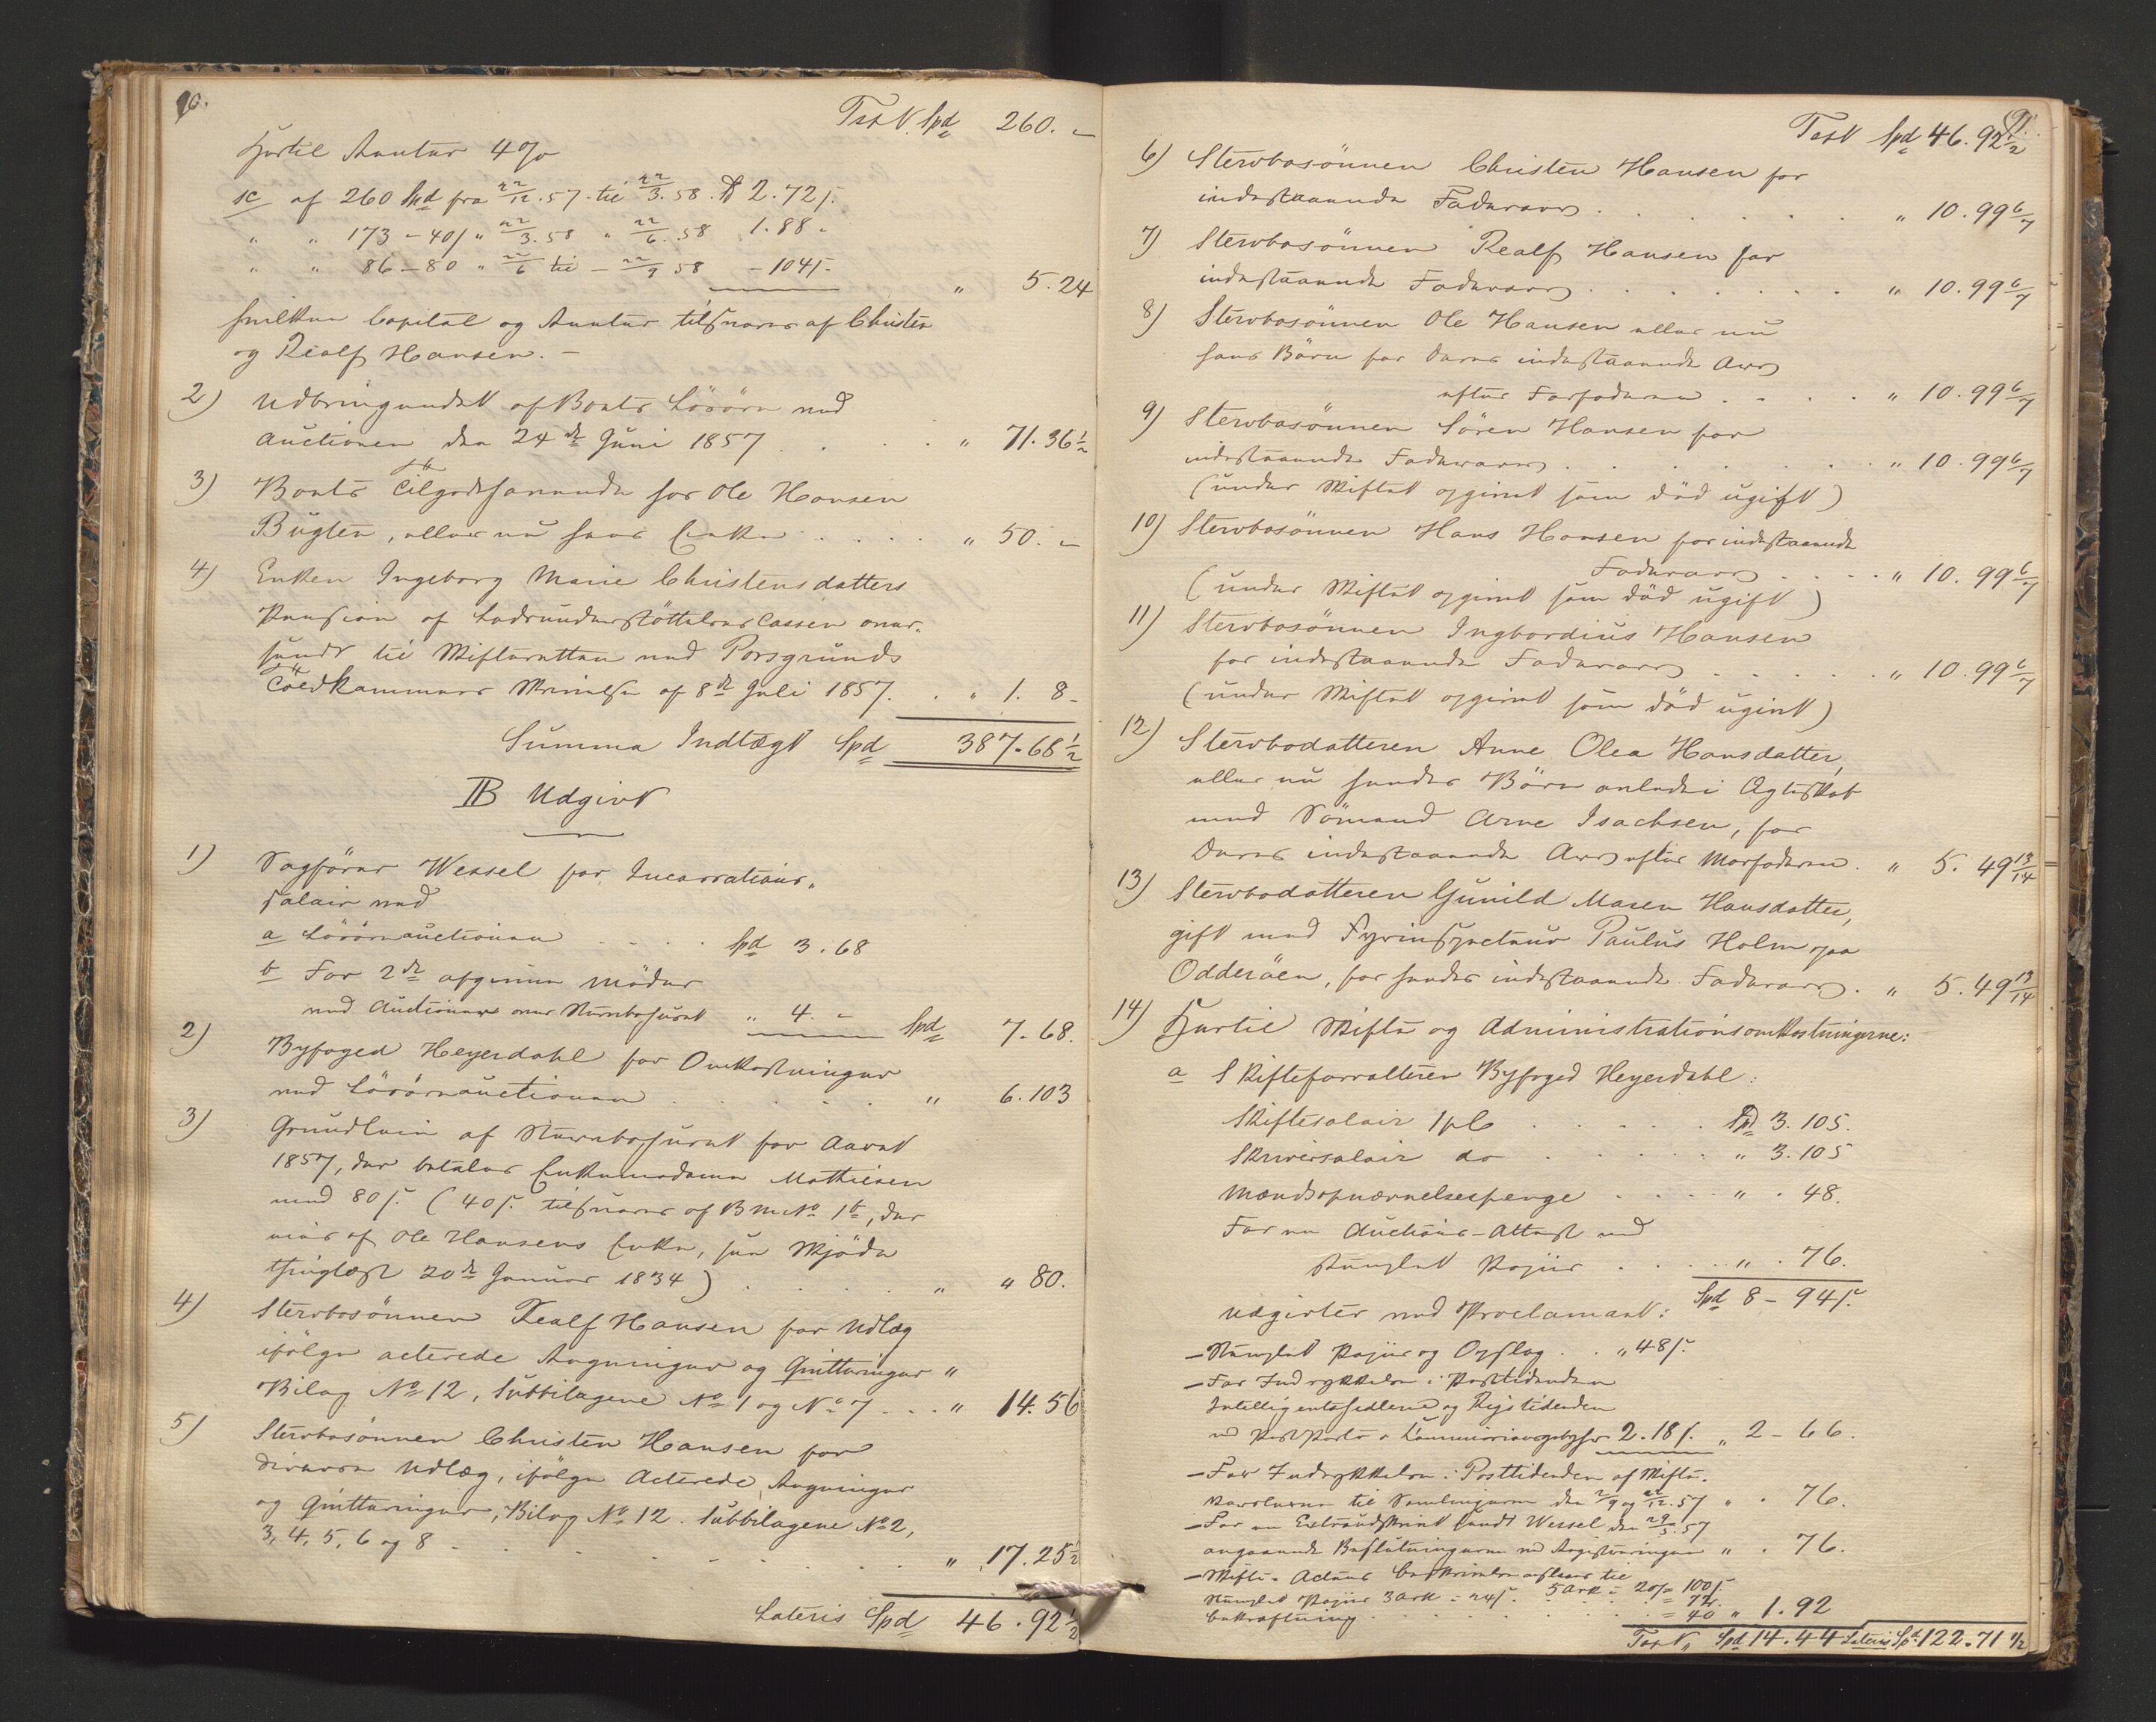 90.
Trspt. Spd 260. "
Hertil Renter 4%
sc af 260 Spd fra 22/12.57. til 22/3.58. Spd 2.72 s.
" " 173 - 40 s " 22/3.58 " 22/6.58 1.88 "
" " 86 - 80 " 22/6 til - 22/9 58 - 104 s. " 5.24
hvilken Capital og Renter tilsvares af Christen
og Realf Hansen. -
2) Udbringendet af Boets Løsøre ved
Auctionen den 24de Juni 1857 . . . " 71.36½
3) Boets Tilgodehavende hos Ole Hansen
Bugten, eller nu hans Enke . . . . . " 50. "
4) Enken Ingeborg Marie Christensdatters
Pension af Lodsunderstøttelses Cassen over-
sendt til Skifteretten med Porsgrunds
Toldkammers Skrivelse af 8de Juli 1857. . " 1. 8 -
Summa Indtægt Spd 387.68½
B Udgivt
1) Sagfører Wessel for Incassations-
salair ved
a Løsøreauctionen . . . . Spd 3.68
b For 2de afgivne Møder
ved Auctioner over Stervbohuset " 4. " Spd 7.68.
2) Byfoged Heyerdahl for Omkostninger
ved Løsøreauctionen . . . . . . " 6.103
3) Grundleie af Stervbohuset for Aaret
1857, der betales Enkemadame Mathiesen
med 80 s. (40 s. tilsvares af B M No 1b, der
eies af Ole Hansens Enke, see Skjøde
thinglæst 20de Januar 1834) . . . . " " 80.
4) Stervbosønnen Realf Hansen for Udlæg
ifølge acterede Regninger og Qvitteringer "
Bilag No 12, Subbilagene No 1 og No 7 . . . " 14.56
5) Stervbosønnen Christen Hansen for
diverse Udlæg, ifølge Acterede Regninger
og Qvitteringer, Bilag No 12. Subbilagene No 2,
3, 4, 5, 6 og 8 - . . . . . . " 17.25½
Lateris Spd 46.92½
91.
Trspt Spd 46.92½
6) Stervbosønnen Christen Hansen for
indestaaende Fadrearv . . . . . . " 10.99 6/7
7) Stervbosønnen Realf Hansen for
indestaaende Fadrearv . . . . . . " 10.99 6/7
8) Stervbosønnen Ole Hansen eller nu
hans Børn for deres indestaaende Arv
efter Farfaderen . . . . " 10.99 6/7
9) Stervbosønnen Søren Hansen for
indestaaende Fadrearv . . . . . . " 10.99 6/7
(under Skiftet opgivet som død ugift)
10) Stervbosønnen Hans Hansen for indestaaende
Fadrearv . . . . " 10.99 6/7
(under Skiftet opgivet som død ugift)
11) Stervbosønnen Ingbordius Hansen
for indestaaende Fadrearv . . . . . " 10.99 6/7
(under Skiftet opgivet som død ugivt)
12) Stervbodatteren Anne Olea Hansdatter,
eller nu hendes Børn avlede i Ægteskab
med Sømand Arne Isachsen, for
deres indestaaende Arv efter Morfaderen. " 5.49 13/14
13) Stervbodatteren Gunild Maren Hansdatter,
gift med Fyrinspecteur Paulus Holm paa
Odderøen, for hendes indestaaende Fadrearv. " 5.49 13/14
14) Hertil Skifte og Administrationsomkostningerne:
a Skifteforvalteren Byfoged Heyerdahl:
Skiftesalair 1 pCt . . . . . Spd 3.105.
Skriversalair do . . . . . " 3.105
Mandsopnævnelsespenge . . . . " . 48.
For en Auctions-Attest med
stemplet Papiir . . . . " . 76.
Spd 8 - 94 s.
Udgivter ved Proclamaet:
- Stemplet Papiir og Opslag . . " 48 s.
- For Indrykkelse i Posttidenden
Intelligentssedlerne og Rigstidenden
2.18 s. " 2 - 66.
- For Indrykkelse i Posttidenden af Skifte-
til Samlingerne den 2/9 og 22/12.57 " . 76.
- For en Extraudskrivt sendt Wessel den 29/5.57
angaaende Beslutningerne ved Registeringen " . 76.
- Skifte- Actens Beskrivelse til
5 Ark = 20 s = 100 s.
Stemplet Papiir 3 Ark = 24 s. . . . = 72.
Bekræftning . . . . = 40 " 1.92
Trspt. Spd 14.44 Lateris Spd 122.71 1/2